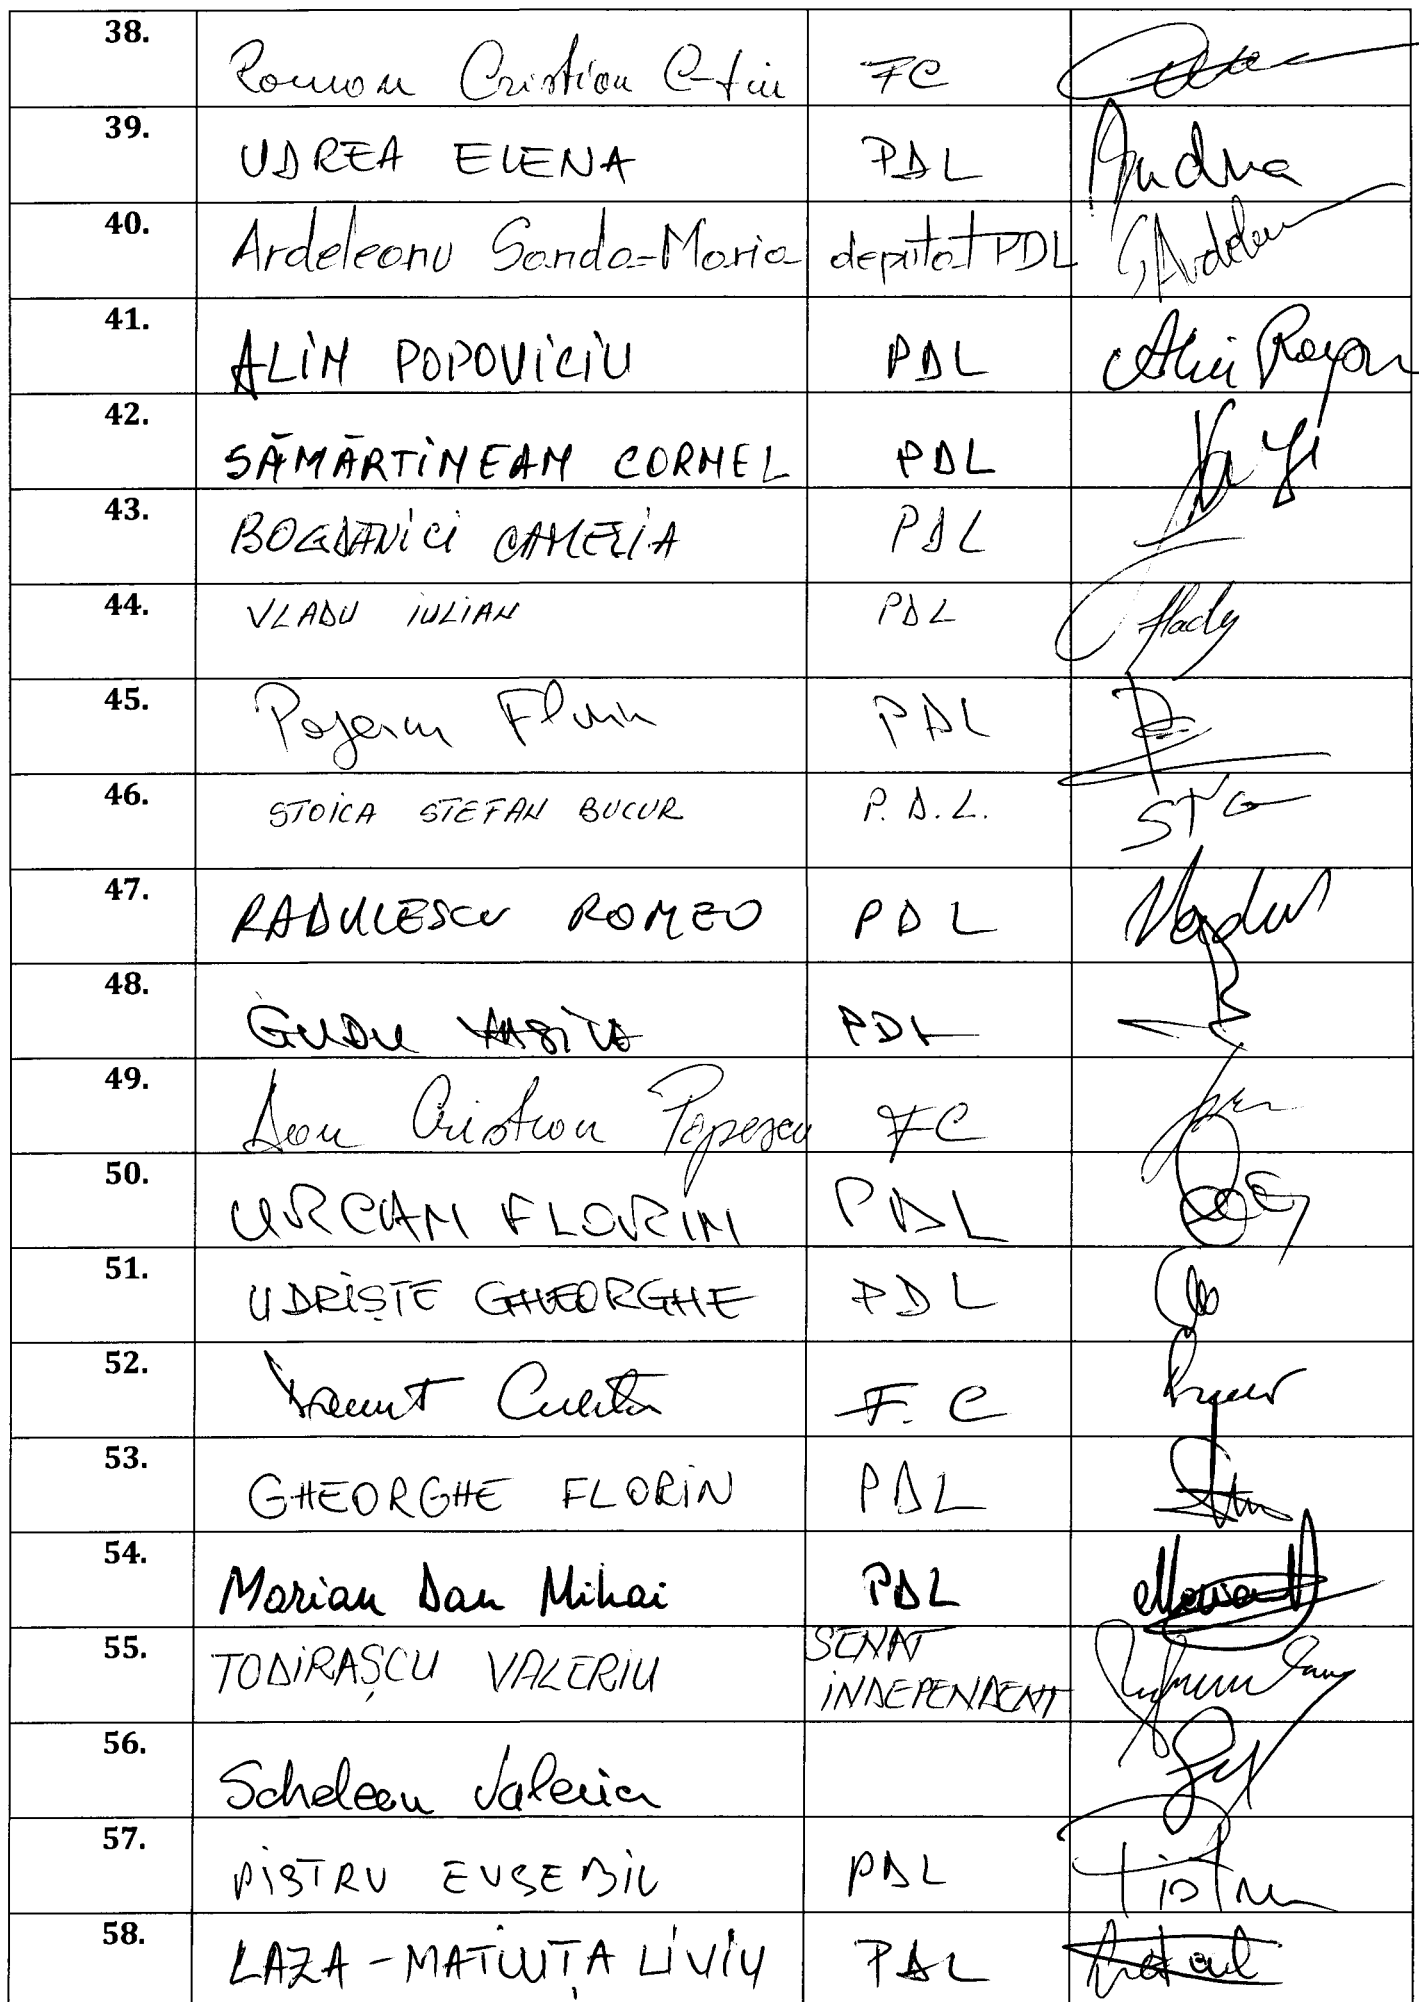 38. Roman Cristian C-tin FC
39. UDREA ELENA PDL Eudrea
40. Ardeleanu Sanda-Maria deputat PDL SArdelean
41. ALIN POPOVICIU PDL
42. SĂMĂRTINEAN CORNEL PDL
43. BOGDĂNICI CAMELIA PDL
44. VLADU IULIAN PDL
45. Postolachi Florin PDL
46. STOICA STEFAN BUCUR P.D.L.
47. RADULESCU ROMEO PDL
48. GUDU VASILE PDL
49. Dan Cristian Popescu FC
50. URCAN FLORIN PDL
51. UDRIȘTE GHEORGHE PDL
52. F.C
53. GHEORGHE FLORIN PDL
54. Marian Dan Mihai PDL
55. TODIRAȘCU VALERIU SENAT
INDEPENDENT
56. Schelean Valeria
57. PISTRU EUSEBIU PDL Pistru
58. LAZA-MATIUȚA LIVIU PDL